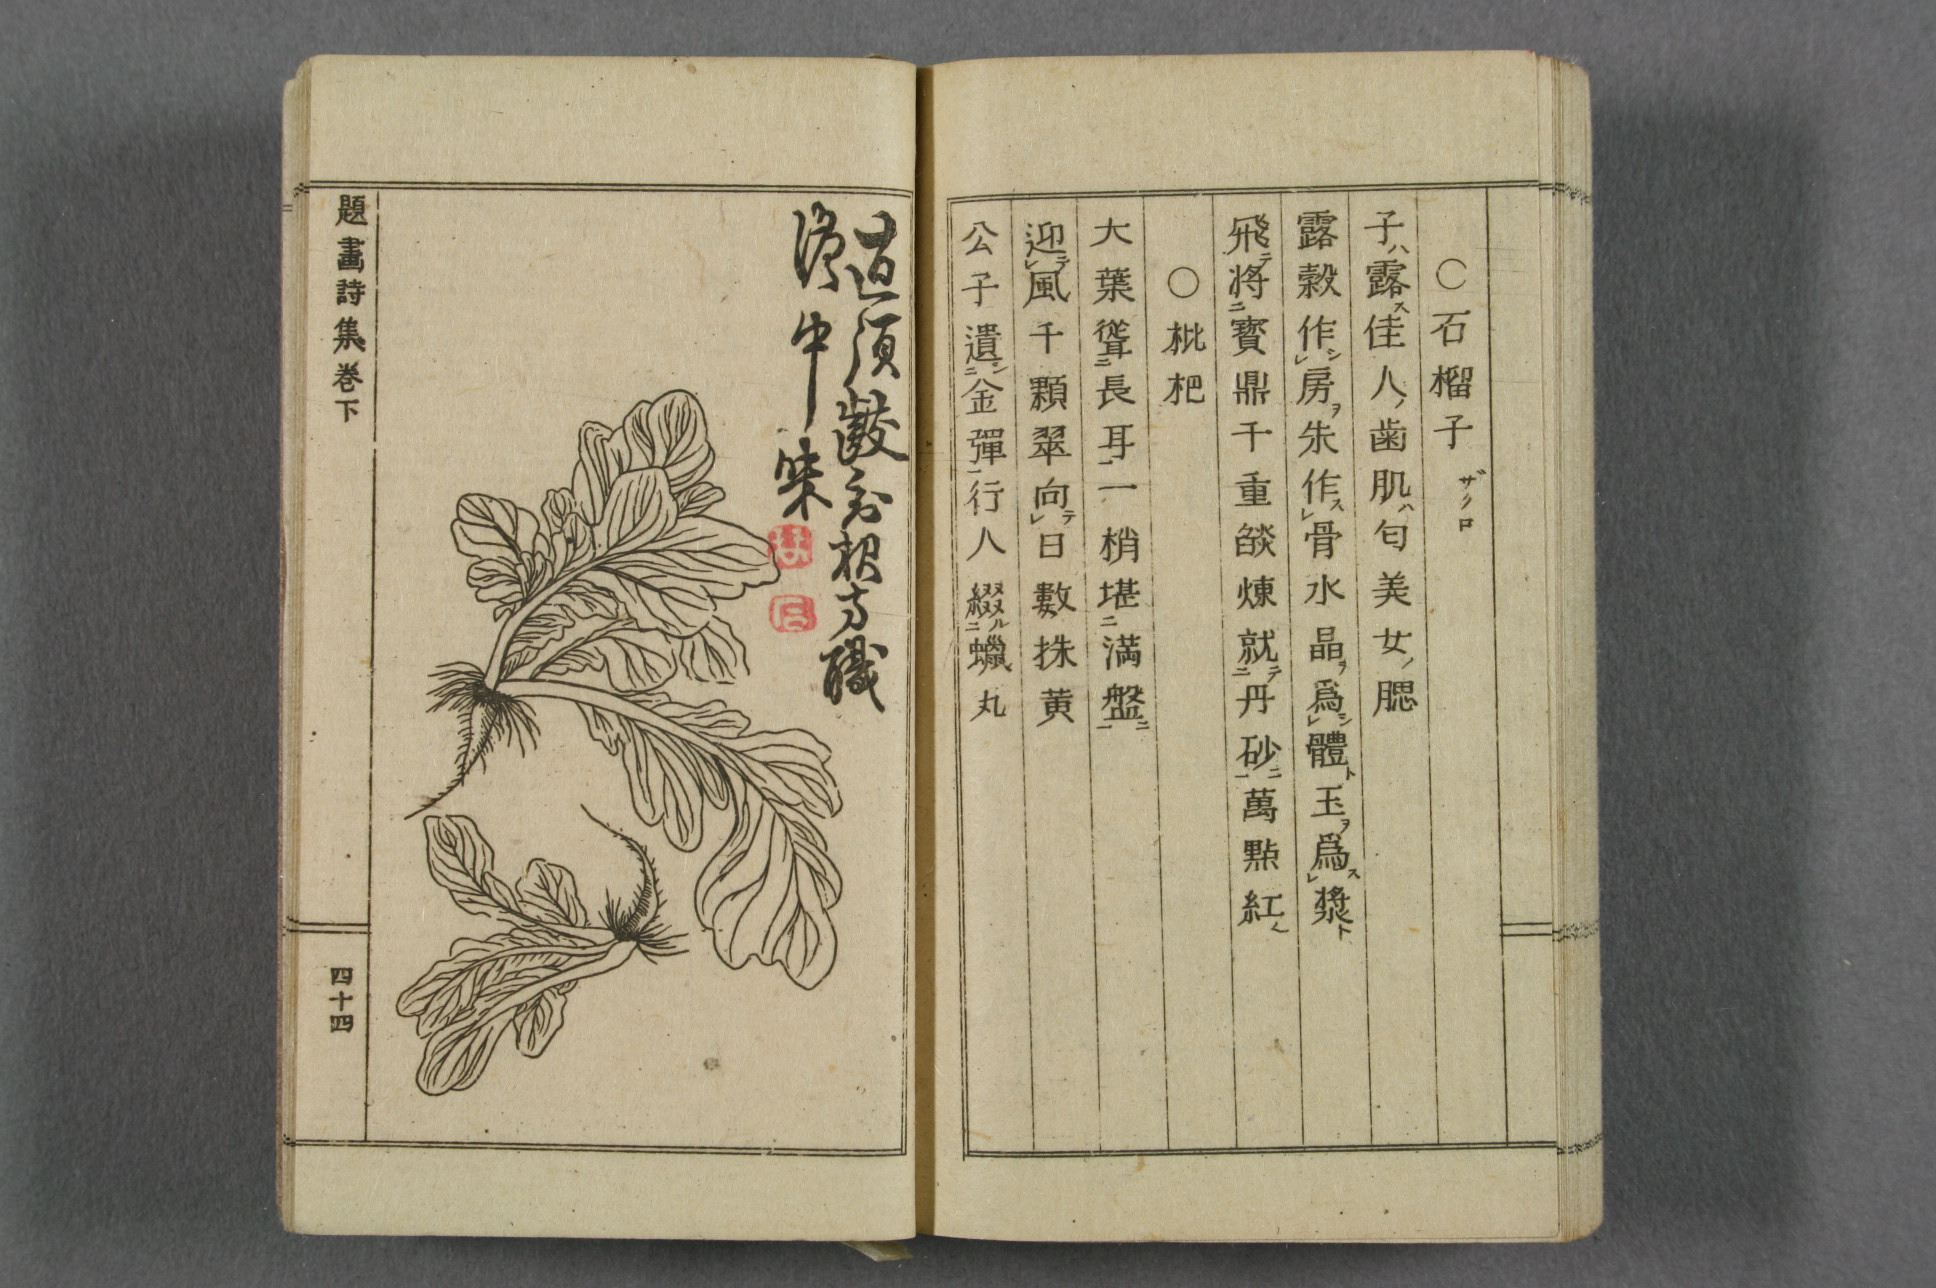 ○石榴子 ザクロ
子ハ露ス佳人ノ歯肌ハ匂美女ノ腮
露穀作シレ房ヲ朱作スレ骨水晶ヲ爲シレ體ト玉ヲ爲スレ漿ト
飛テ將ニ寳鼎千重燄煉就テ二丹砂ニ一萬點紅ヘ
○枇杷
大葉聳二長耳一一梢堪二満盤ニ一
迎テレ風千顆翠向テレ日數株黄
公子遺シ二金彈一行人綴ル二蠟丸
直須齩
根方識
淂中味
題畫詩集卷下
四十四